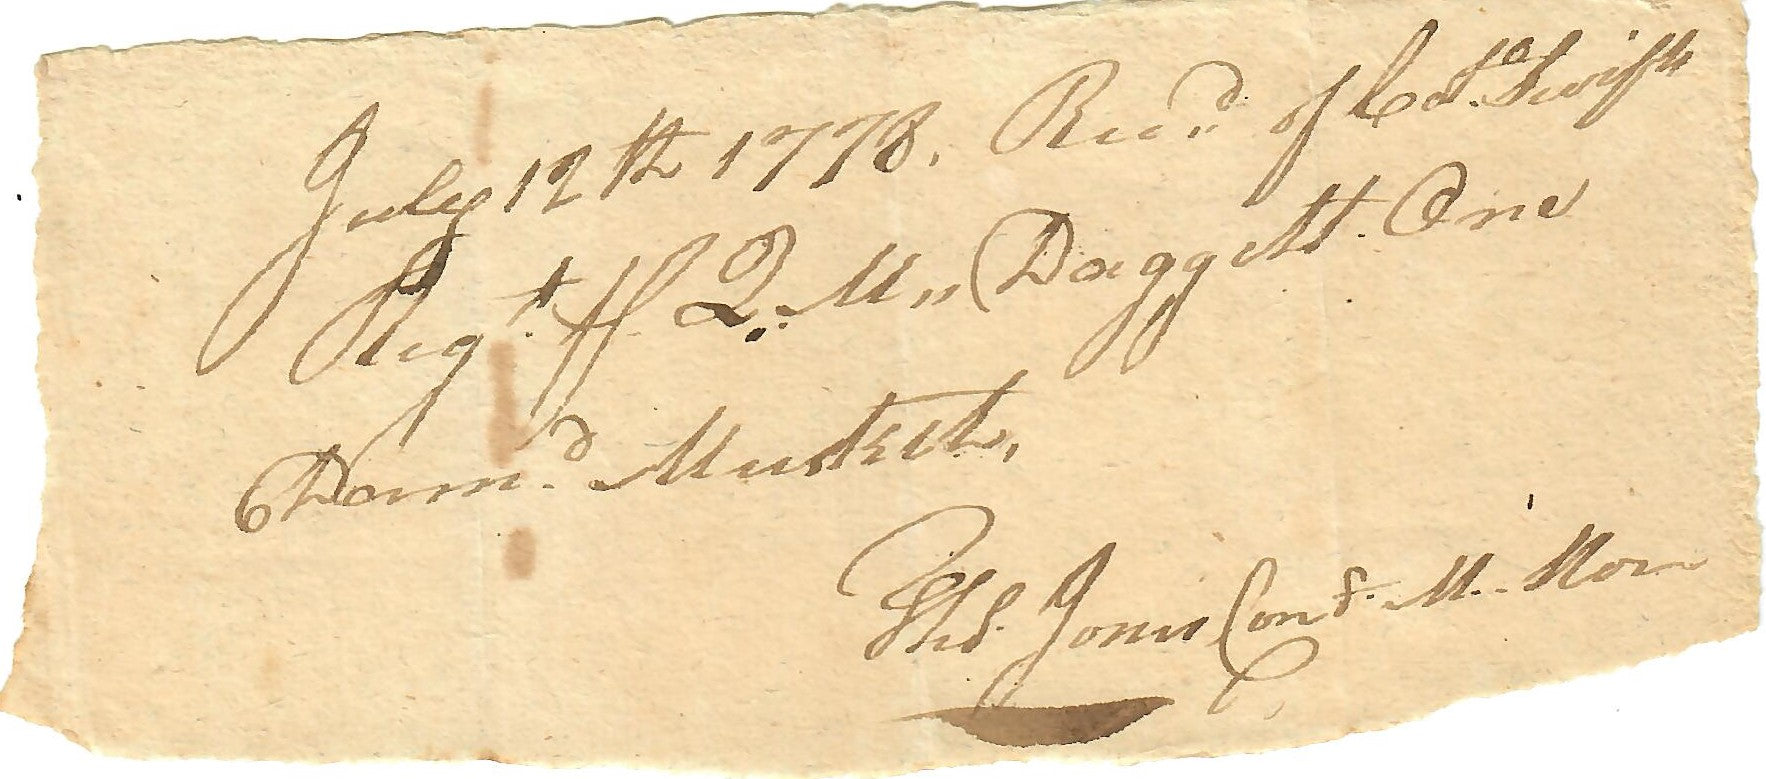 July 12th 1778. Recd. of Col. Swifts
Regt. pr. Q.M. Daggett One
Damd. Musket,
Thos. Jones Condr. M.